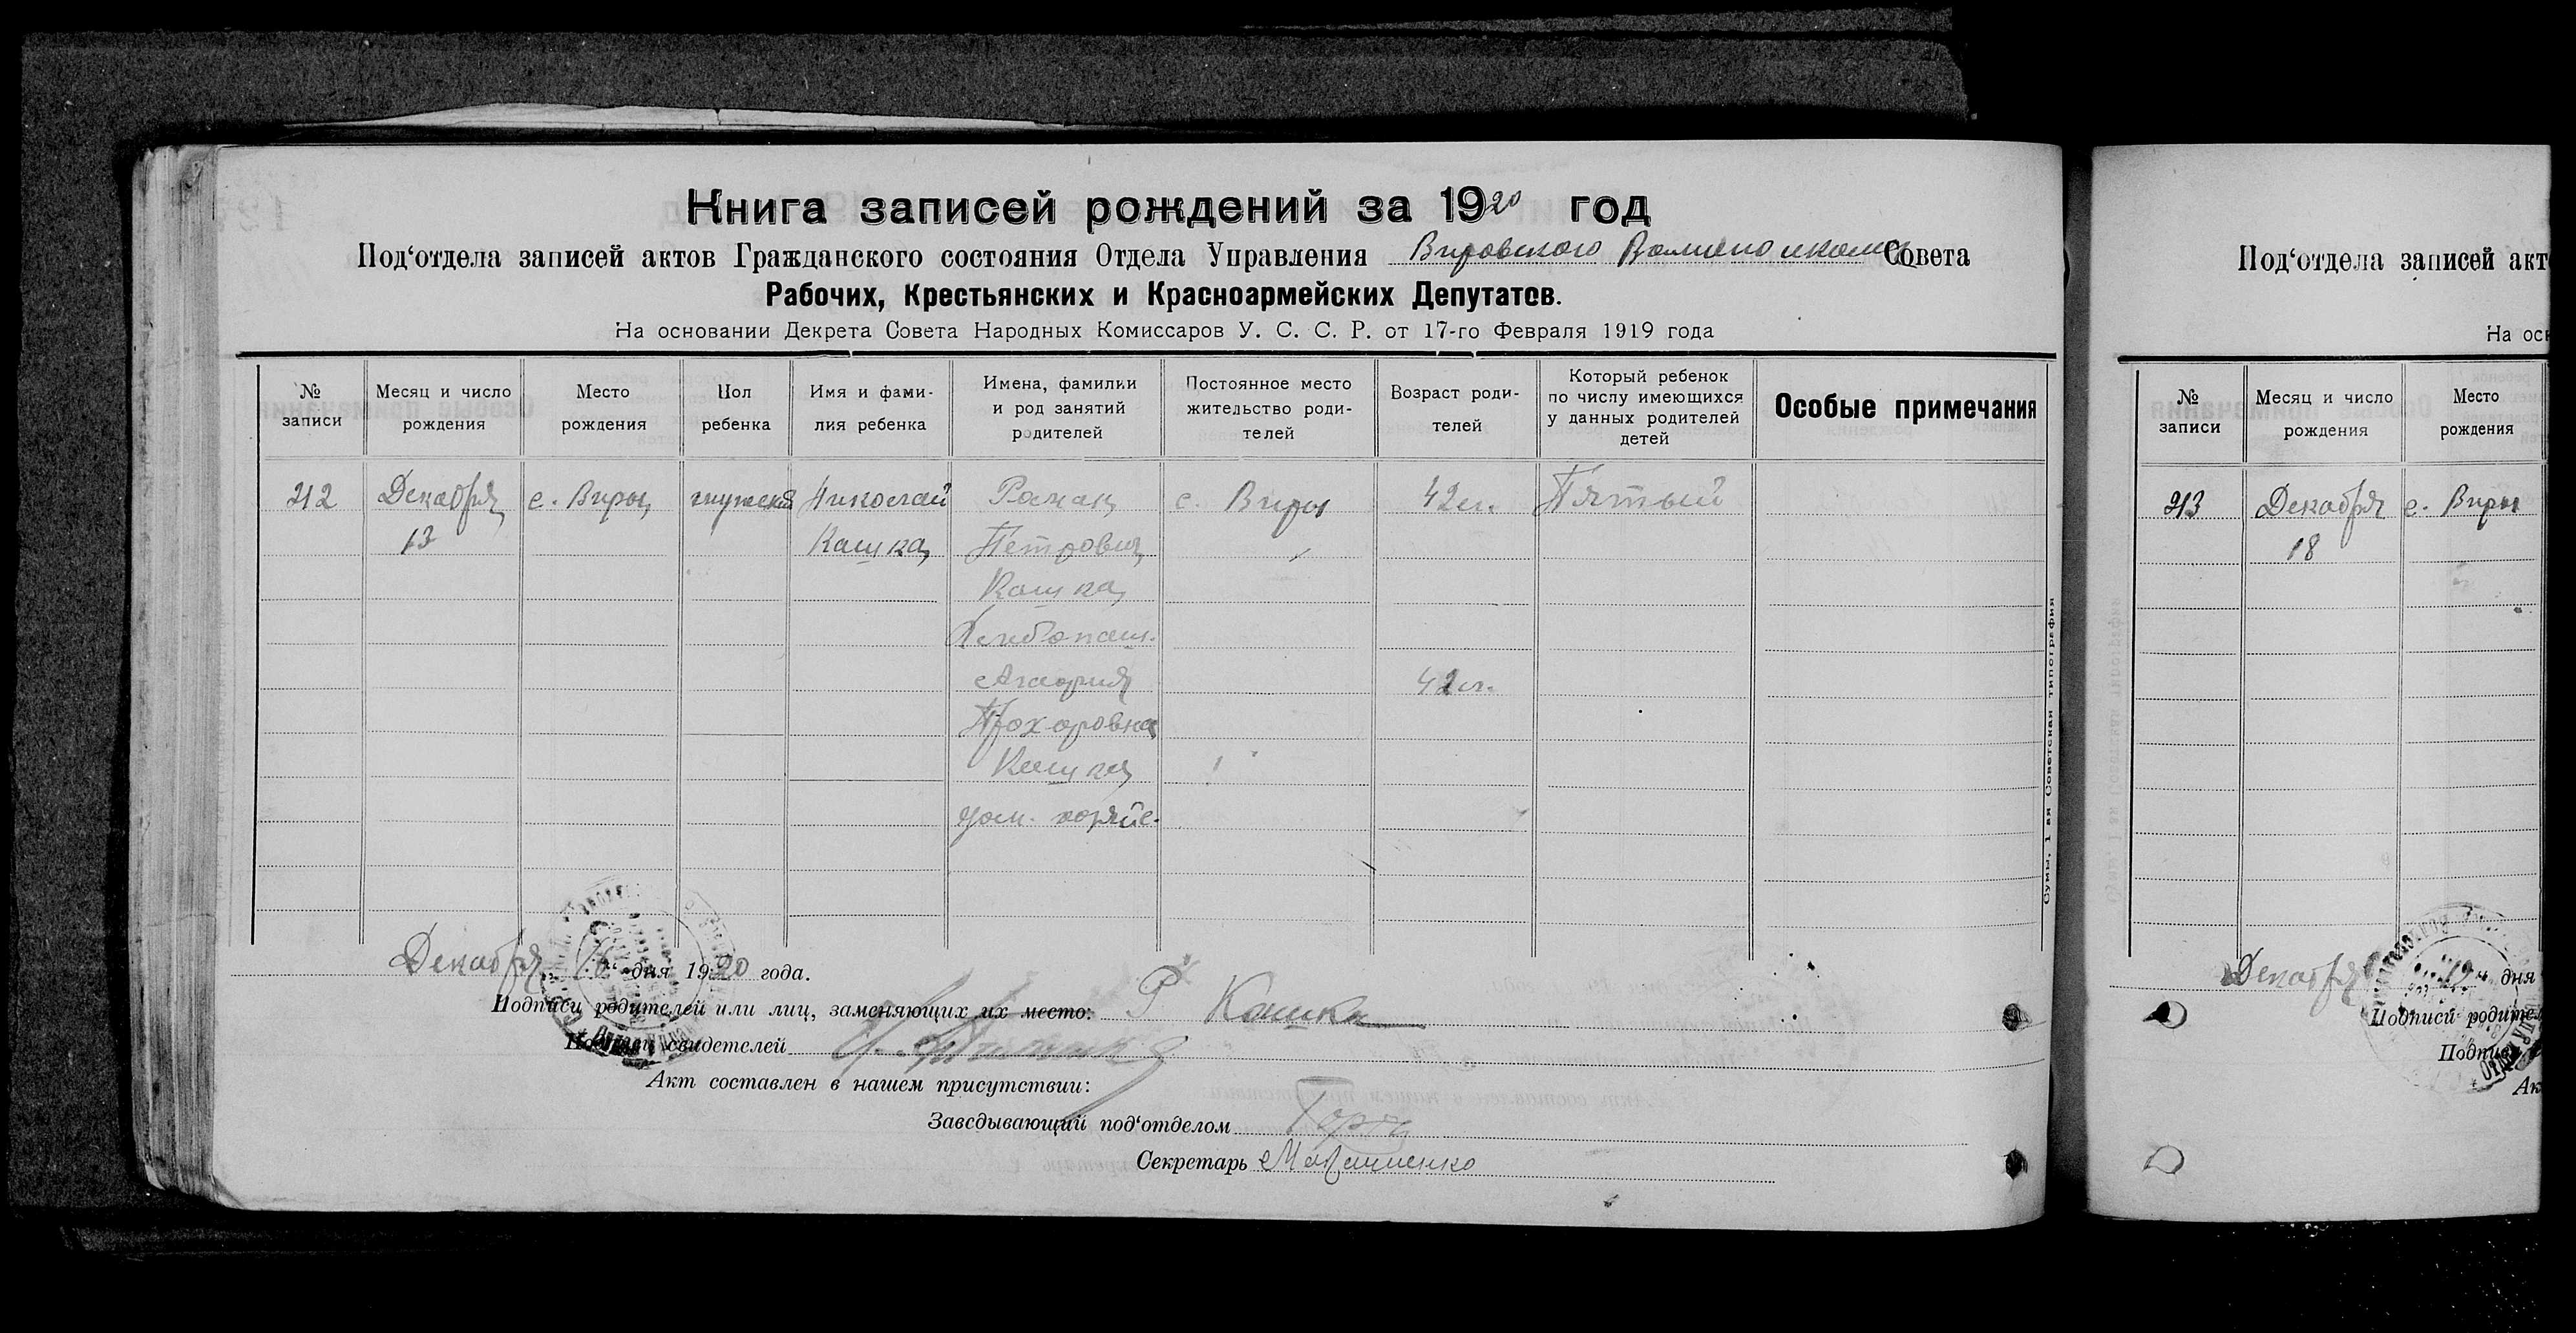 Книга записей рождений за 1920 год
Под‘отдела записей актов Гражданского состояния Отдела Управления Вировского Волисполкома Совета
Рабочих, Крестьянских и Красноармейских Депутатов.
На основании Декрета Совета Народных Комиссаров У. С. С. Р. от 17-го Февраля 1919 года
№ записи
Месяц и число рождения
Место рождения
Пол ребенка
Имя и фами-лия ребенка
Имена, фамилии и род занятий родителей
Постоянное место жительство роди-телей
Возраст роди-телей
Который ребенок по числу имеющихся у данных родителей детей
Особые примечания
212 Декабря с. Виры мужской Николай Роман с. Виры 42 л. Пятый
13 Кашка Петрович
Кашка
Хлебопаш.
Агафия 42 л.
Прохоровна
Кашка
дом. хозяйс.
Сумы, 1 ая Советская типография
Декабря дня 1920 года.
Подписи родителей или лиц, заменяющих их место: Р Кашка
Подписи свидетелей
Акт составлен в нашем присутствии:
Заведывающий под‘отделом
Секретарь
Под‘отдела записей акт
На осн
№ записи
Месяц и число рождения
Место рождения
213 Декабря с. Виры
18
Декабря 19 дня
Подписи родител
Подписи
Ак